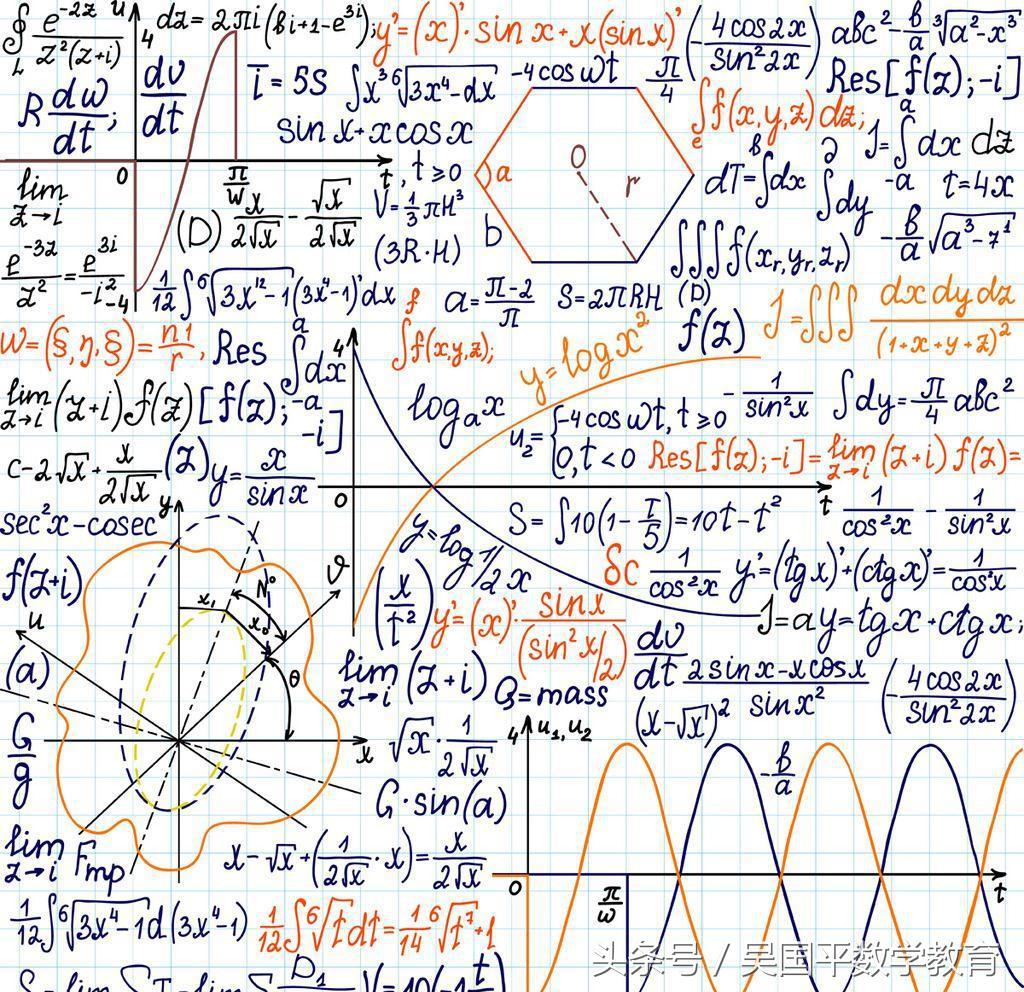 ∮_L e^{-2z}/(z²(z+i))
u
4
dz = 2πi(вi+1-e^{3i});
y'=(x)'·sin x+x(sin x)'
(-4cos2x/sin²2x)
abc² - в/a ∛(a²-x³)
R dw/dt;
dv/dt
T = 5S
∫x³ ⁶√(3x⁴-dx)
-4cos wt
π/4
Res[f(z);-i]
sin x+x cos x
∫_e f(x,y,z)dz;
J=∫_{-a}^{a} dx dz
0
π/w
t
, t≥0
a
O
r
b
dT=∫^в dx
∫^∂ dy
t=4x
lim z→i
(D) x/(2√x) - √x/(2√x)
V=1/3πH³
(3R·H)
∫∫∫f(x_r,y_r,z_r)
-в/a √(a³-7¹)
e^{-3z}/z² = e^{3i}/-i²
-4
1/12∫⁶√(3x¹²-1)(3x⁴-1)'dx
a=(π-2)/π
S=2πRH
(D)
J=∫∫∫ dx dy dz/(1+x+y+z)²
W=(§,η,§)=n1/r,
Res
∫_{-a}^{a} dx
4
∫f(x,y,z);
y=log x²
f(z)
lim z→i (z+i)f(z)[f(z);-i]
log_a x
u₂={-4cos wt, t≥0
0, t<0
-1/sin²x
∫dy=π/4 abc²
c-2√x+x/(2√x)
(z)
y=x/sin x
Res[f(z);-i]=lim z→i (z+i) f(z)=
0
t
sec²x-cosec
y
y=log1/2 x
S=∫10(1-T/5)=10t-t²
1/cos²x - 1/sin²x
f(z+i)
N°
x₁
x₀
ϑ
(x/t²)
δc
1/cos²x
y'=(tgx)'+(ctgx)'=1/cos²x
u
y'=(x)'·sin x/(sin²x/2)
J=ay=tgx+ctgx;
(a)
θ
lim z→i (z+i)
Q=mass
dv/dt
(2sin x-x cos x)/sin x²
(-4cos2x/sin²2x)
G/g
x
√x·1/(2√x)
4
u₁,u₂
(x-√x)²
-в/a
G·sin(a)
lim z→i
Fmp
x-√x+(1/(2√x)·x)=x/(2√x)
0
π/w
t
1/12∫⁶√(3x⁴-1)d(3x⁴-1)
1/12∫⁶√t dt=1/14 ⁶√(t⁷)+1
头条号 / 吴国平数学教育